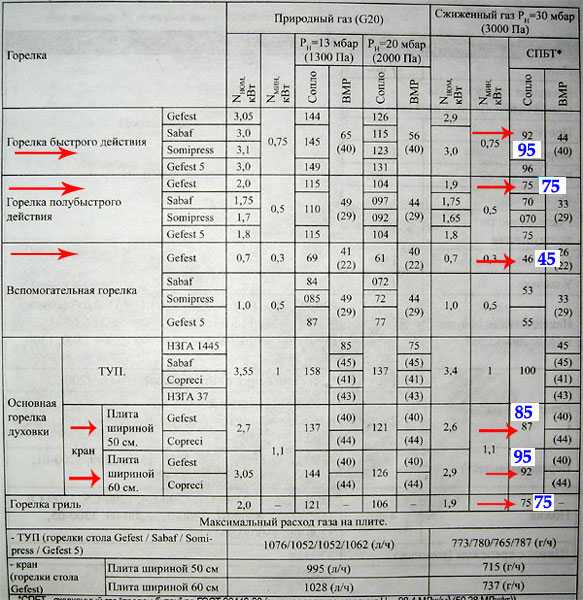 Горелка Природный газ (G20) Сжиженный газ Pн=30 мбар
(3000 Па)
Nном, кВт Nмин, кВт Pн=13 мбар (1300 Па) Pн=20 мбар (2000 Па) Nном, кВт Nмин, кВт СПБТ*
Сопло ВМР Сопло ВМР Сопло ВМР
Горелка быстрого действия
Gefest 3,05 0,75 144 65 (40) 126 56 (40) 2,9 0,75 92 44 (40)
Sabaf 3,0 145 115 3,0
Somipress 3,1 123 95
Gefest 5 3,0 149 131 96
Горелка полубыстрого действия
Gefest 2,0 0,5 115 49 (29) 104 44 (29) 1,9 0,5 75 75 33 (29)
Sabaf 1,75 110 097 1,75 70
Somipress 1,7 092 1,65 070
Gefest 5 1,8 115 104 1,8 75
Вспомогательная горелка
Gefest 0,7 0,3 69 41 (22) 61 40 (22) 0,7 0,3 46 45 26 (22)
Sabaf 1,0 0,5 84 49 (29) 072 44 (29) 1,0 0,5 53 33 (29)
Somipress 085 72
Gefest 5 87 77 55
Основная горелка духовки
ТУП. НЗГА 1445 3,55 1 158 85 137 75 3,4 1 100 45
Sabaf (45) (45) (45)
Copreci (41) (41) (41)
НЗГА 37 (43) (43) (43)
кран
Плита шириной 50 см. Gefest 2,7 1,1 137 (40) 121 (40) 2,6 1,1 87 85 (40)
Copreci (44) (44) (44)
Плита шириной 60 см. Gefest 3,05 144 (40) 126 (40) 2,9 92 95 (40)
Copreci (44) (44) (44)
Горелка гриль 2,0 – 121 – 106 – 1,9 – 75 75 –
Максимальный расход газа на плите.
- ТУП (горелки стола Gefest / Sabaf / Somi-
press / Gefest 5) 1076/1052/1052/1062 (л/ч) 773/780/765/787 (г/ч)
- кран
(горелки стола
Gefest)
Плита шириной 50 см 995 (л/ч) 715 (г/ч)
Плита шириной 60 см 1028 (л/ч) 737 (г/ч)